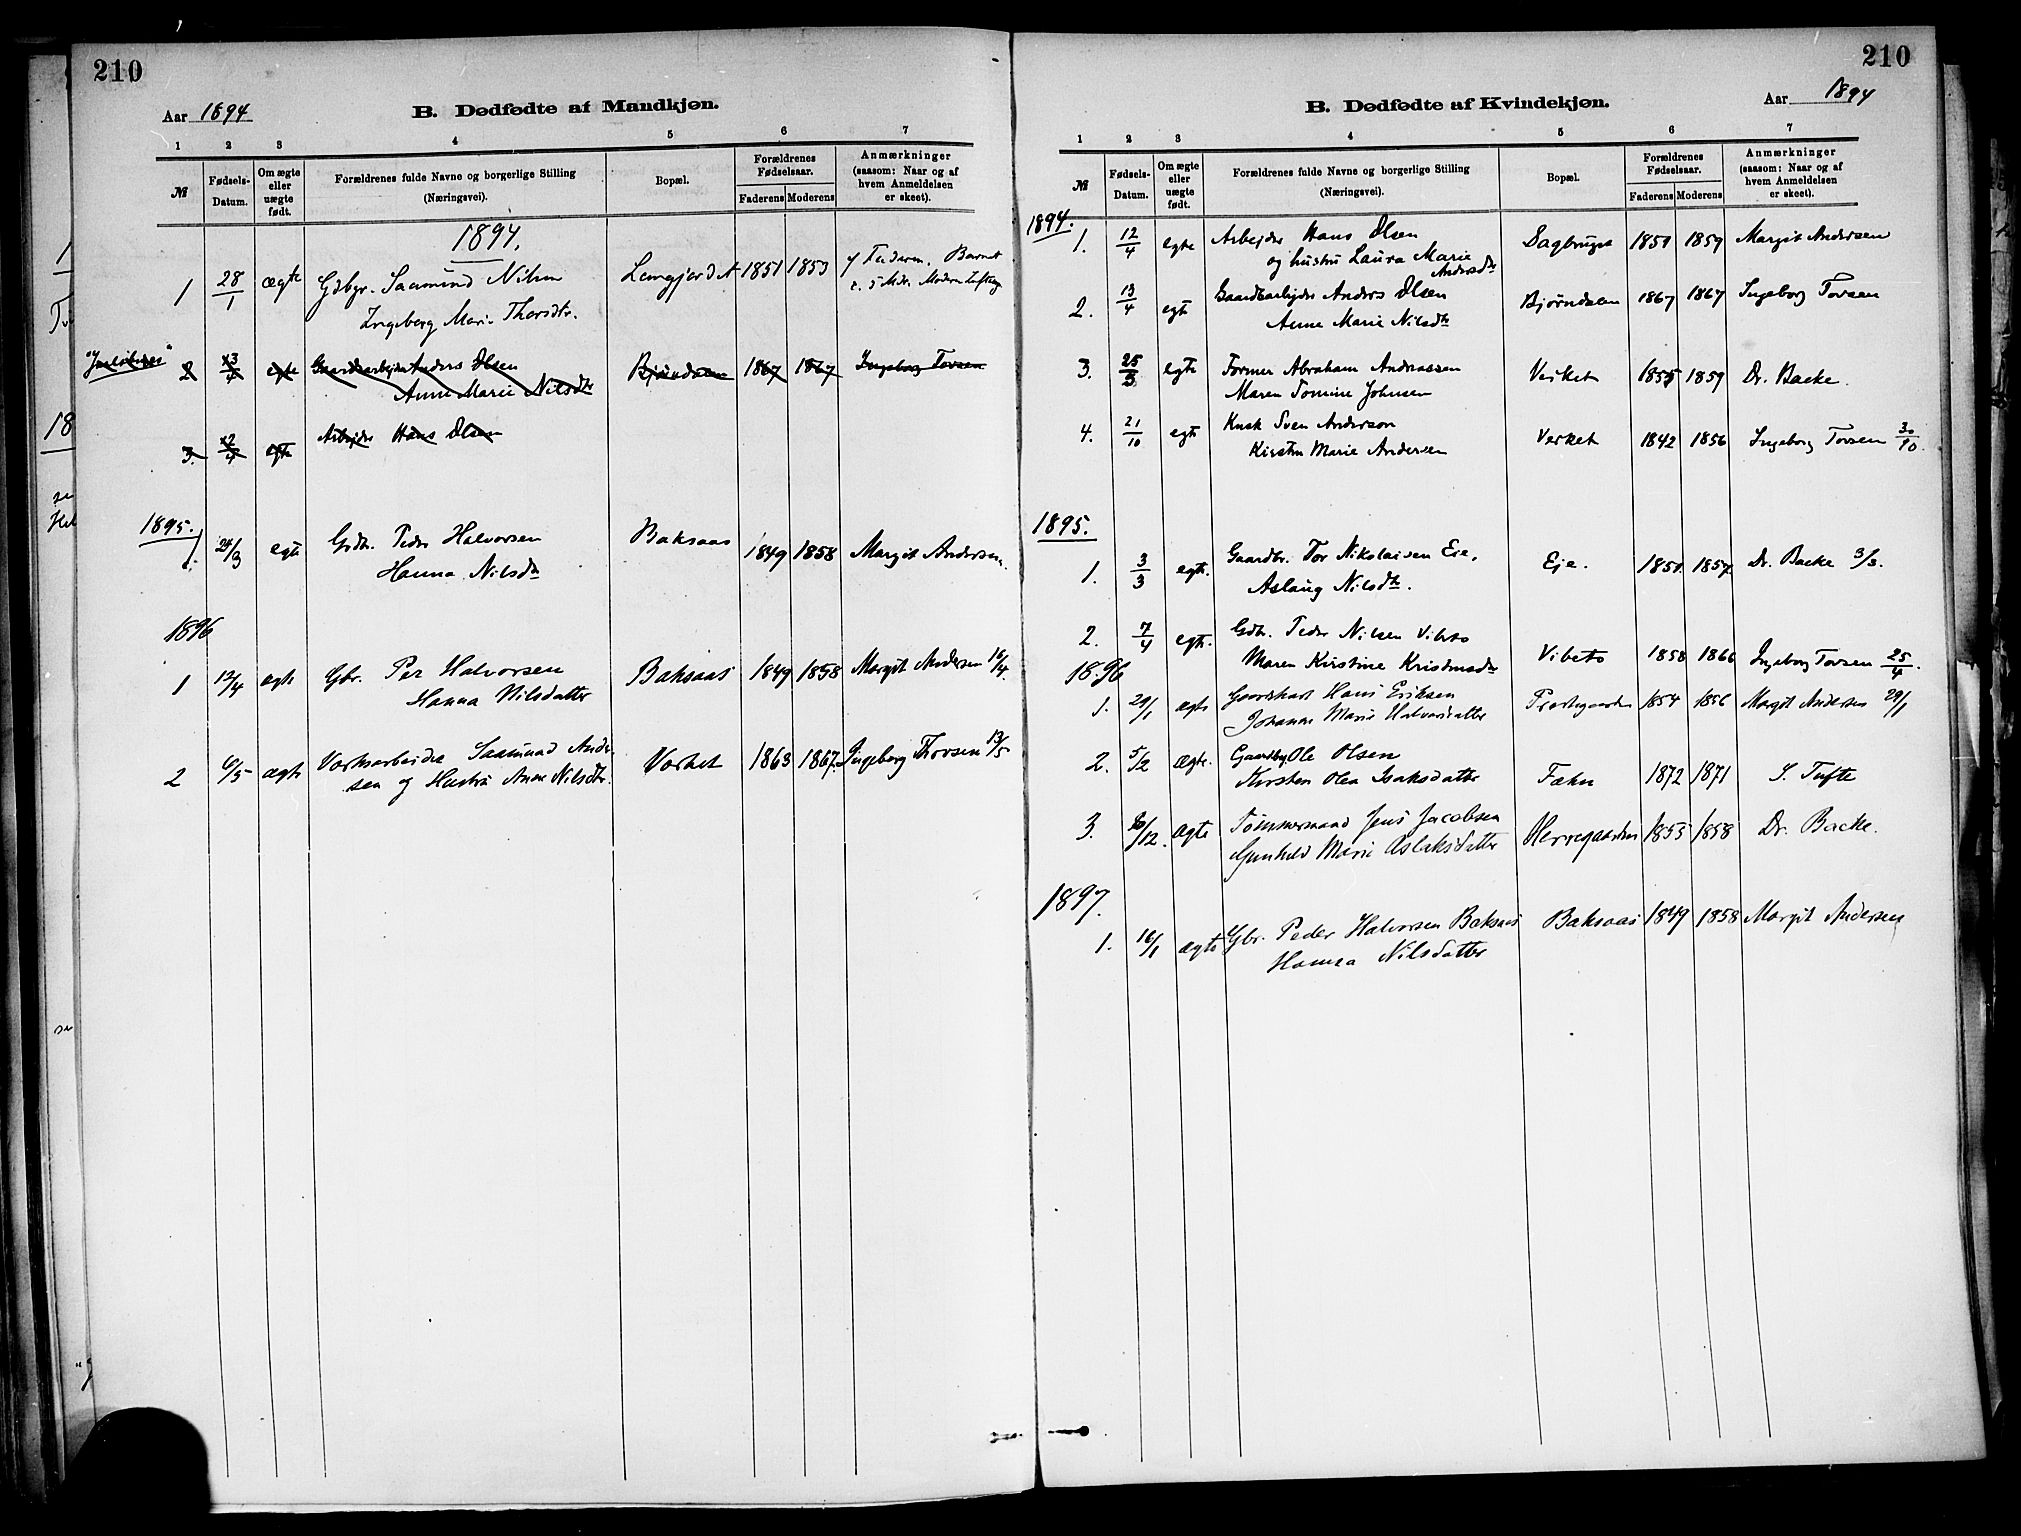 210
Aar 1894
B. Dødfødte af Mandkjøn.
1 2 3 4 5 6 7
№
Fødsels-Datum.
Om ægte eller uægte født.
Forældrenes fulde Navne og borgerlige Stilling
(Næringsvei).
Bopæl.
Forældrenes Fødselsaar.
Faderens Moderens
Anmærkninger
(saasom: Naar og af
hvem Anmeldelsen
er skeet).
1894.
1 28/1 ægte Gdbgr. Saamund Nilsen 1851 1853
Ingeborg Marie Thorsdtr.
2 13/4 egte Gaardarbeider Anders Olsen Bjørndalen 1867 1867 Ingeborg Torsen
Anne Marie Nilsdtr
3. 12/4 egte Arbejder Hans Olsen
1895.
1. 24/3 egte Gdbr. Peder Halvorsen Baksaas 1849 1858 Margit Andersen.
Hanna Nilsdtr
1896
1 12/4 ægte Gbr. Per Halvorsen Baksaas 1849 1858 Margit Andersen 16/4.
Hanna Nilsdatter
2 6/5 ægte Værksarbeider Saamund Ander- Værket 1863 1867. Ingeborg Thorsen 13/5
sen og Hustru Anne Nilsdtr.
210
Aar 1894
B. Dødfødte af Kvindekjøn.
1 2 3 4 5 6 7
№
Fødsels-Datum.
Om ægte eller uægte født.
Forældrenes fulde Navne og borgerlige Stilling
(Næringsvei).
Bopæl.
Forældrenes Fødselsaar.
Faderens Moderens
Anmærkninger
(saasom: Naar og af
hvem Anmeldelsen
er skeet).
1894.
1. 12/4 egte Arbejder Hans Olsen Sagbruget 1851 1859 Margit Andersen
og hustru Laura Marie
Andersdtr
2. 13/4 egte Gaardarbejder Anders Olsen Bjørndalen 1867 1867 Ingeborg Torsen
Anne Marie Nilsdtr
3. 25/5 egte Former Abraham Andreassen Verket 1855 1859 Dr. Backe.
Maren Tomine Johnsen
4. 21/10 egte Kusk Sven Anderson Verket 1842 1856 Ingeborg Torsen 30/10.
Kirsten Marie Andersen
1895.
1. 3/3 egte. Gaardbr. Tor Nikolaisen Eie. Eje. 1851 1857 Dr. Backe 3/3.
Aslaug Nilsdtr.
2. 7/4 egte. Gdbr. Peder Nilsen Vibeto Vibeto 1858 1866 Ingeborg Torsen 25/4.
Maren Kirstine Kristensdtr
1896
1. 29/1 ægte Gaardskarl Hans Eriksen Prestegaarden 1854 1856 Margit Andersen 29/1
Johanne Marie Halvorsdatter
2. 5/2 ægte. Gaardbr Ole Olsen Fæhn 1872 1871 S. Tufte
Kirsten Olea Isaksdatter
3. /12. ægte Tømmermand Jens Jacobsen Herregaarden 1855 1858 Dr. Backe.
Gunhild Marie Aslaksdatter
1897.
1. 16/1 ægte Gbr. Peder Halvorsen Baksaas Baksaas 1849 1858 Margit Andersen
Hanna Nilsdatter